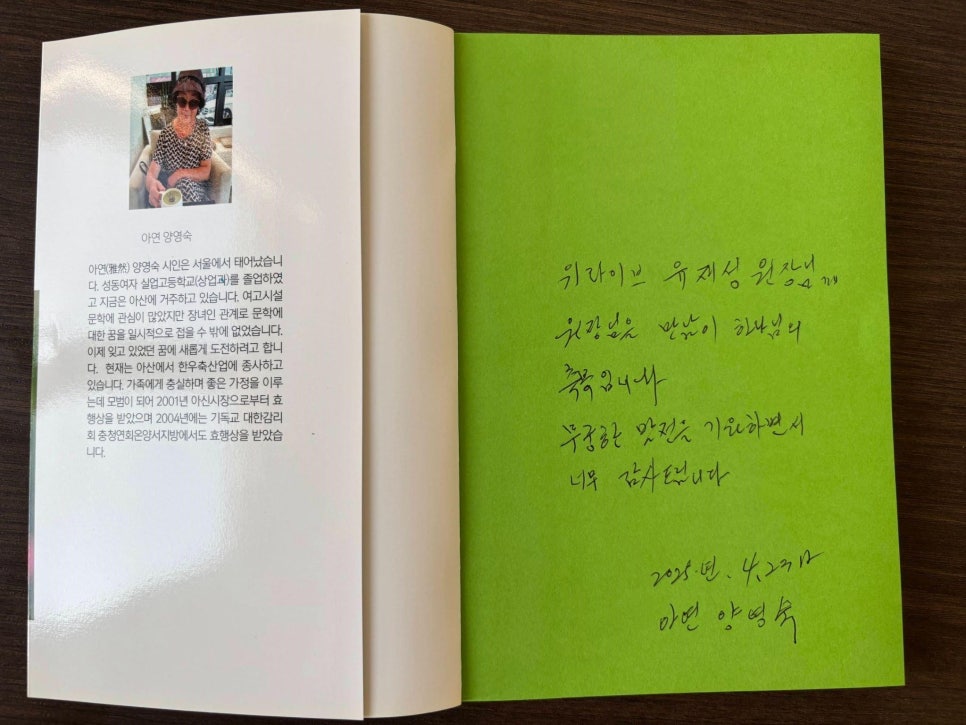 아연 양영숙
아연(雅然) 양영숙 시인은 서울에서 태어났습니
다. 성동여자 실업고등학교(상업과)를 졸업하였
고 지금은 아산에 거주하고 있습니다. 여고시설
문학에 관심이 많았지만 장녀인 관계로 문학에
대한 꿈을 일시적으로 접을 수 밖에 없었습니다.
이제 잊고 있었던 꿈에 새롭게 도전하려고 합니
다. 현재는 아산에서 한우축산업에 종사하고
있습니다. 가족에게 충실하며 좋은 가정을 이루
는데 모범이 되어 2001년 아신시장으로부터 효
행상을 받았으며 2004년에는 기독교 대한감리
회 충청연회온양서지방에서도 효행상을 받았습
니다.
위라이브 유재성 원장님께
원장님을 만남이 하나님의
축복입니다
무궁한 발전을 기원하면서
너무 감사드립니다
2025.년. 4. 27
아연 양영숙